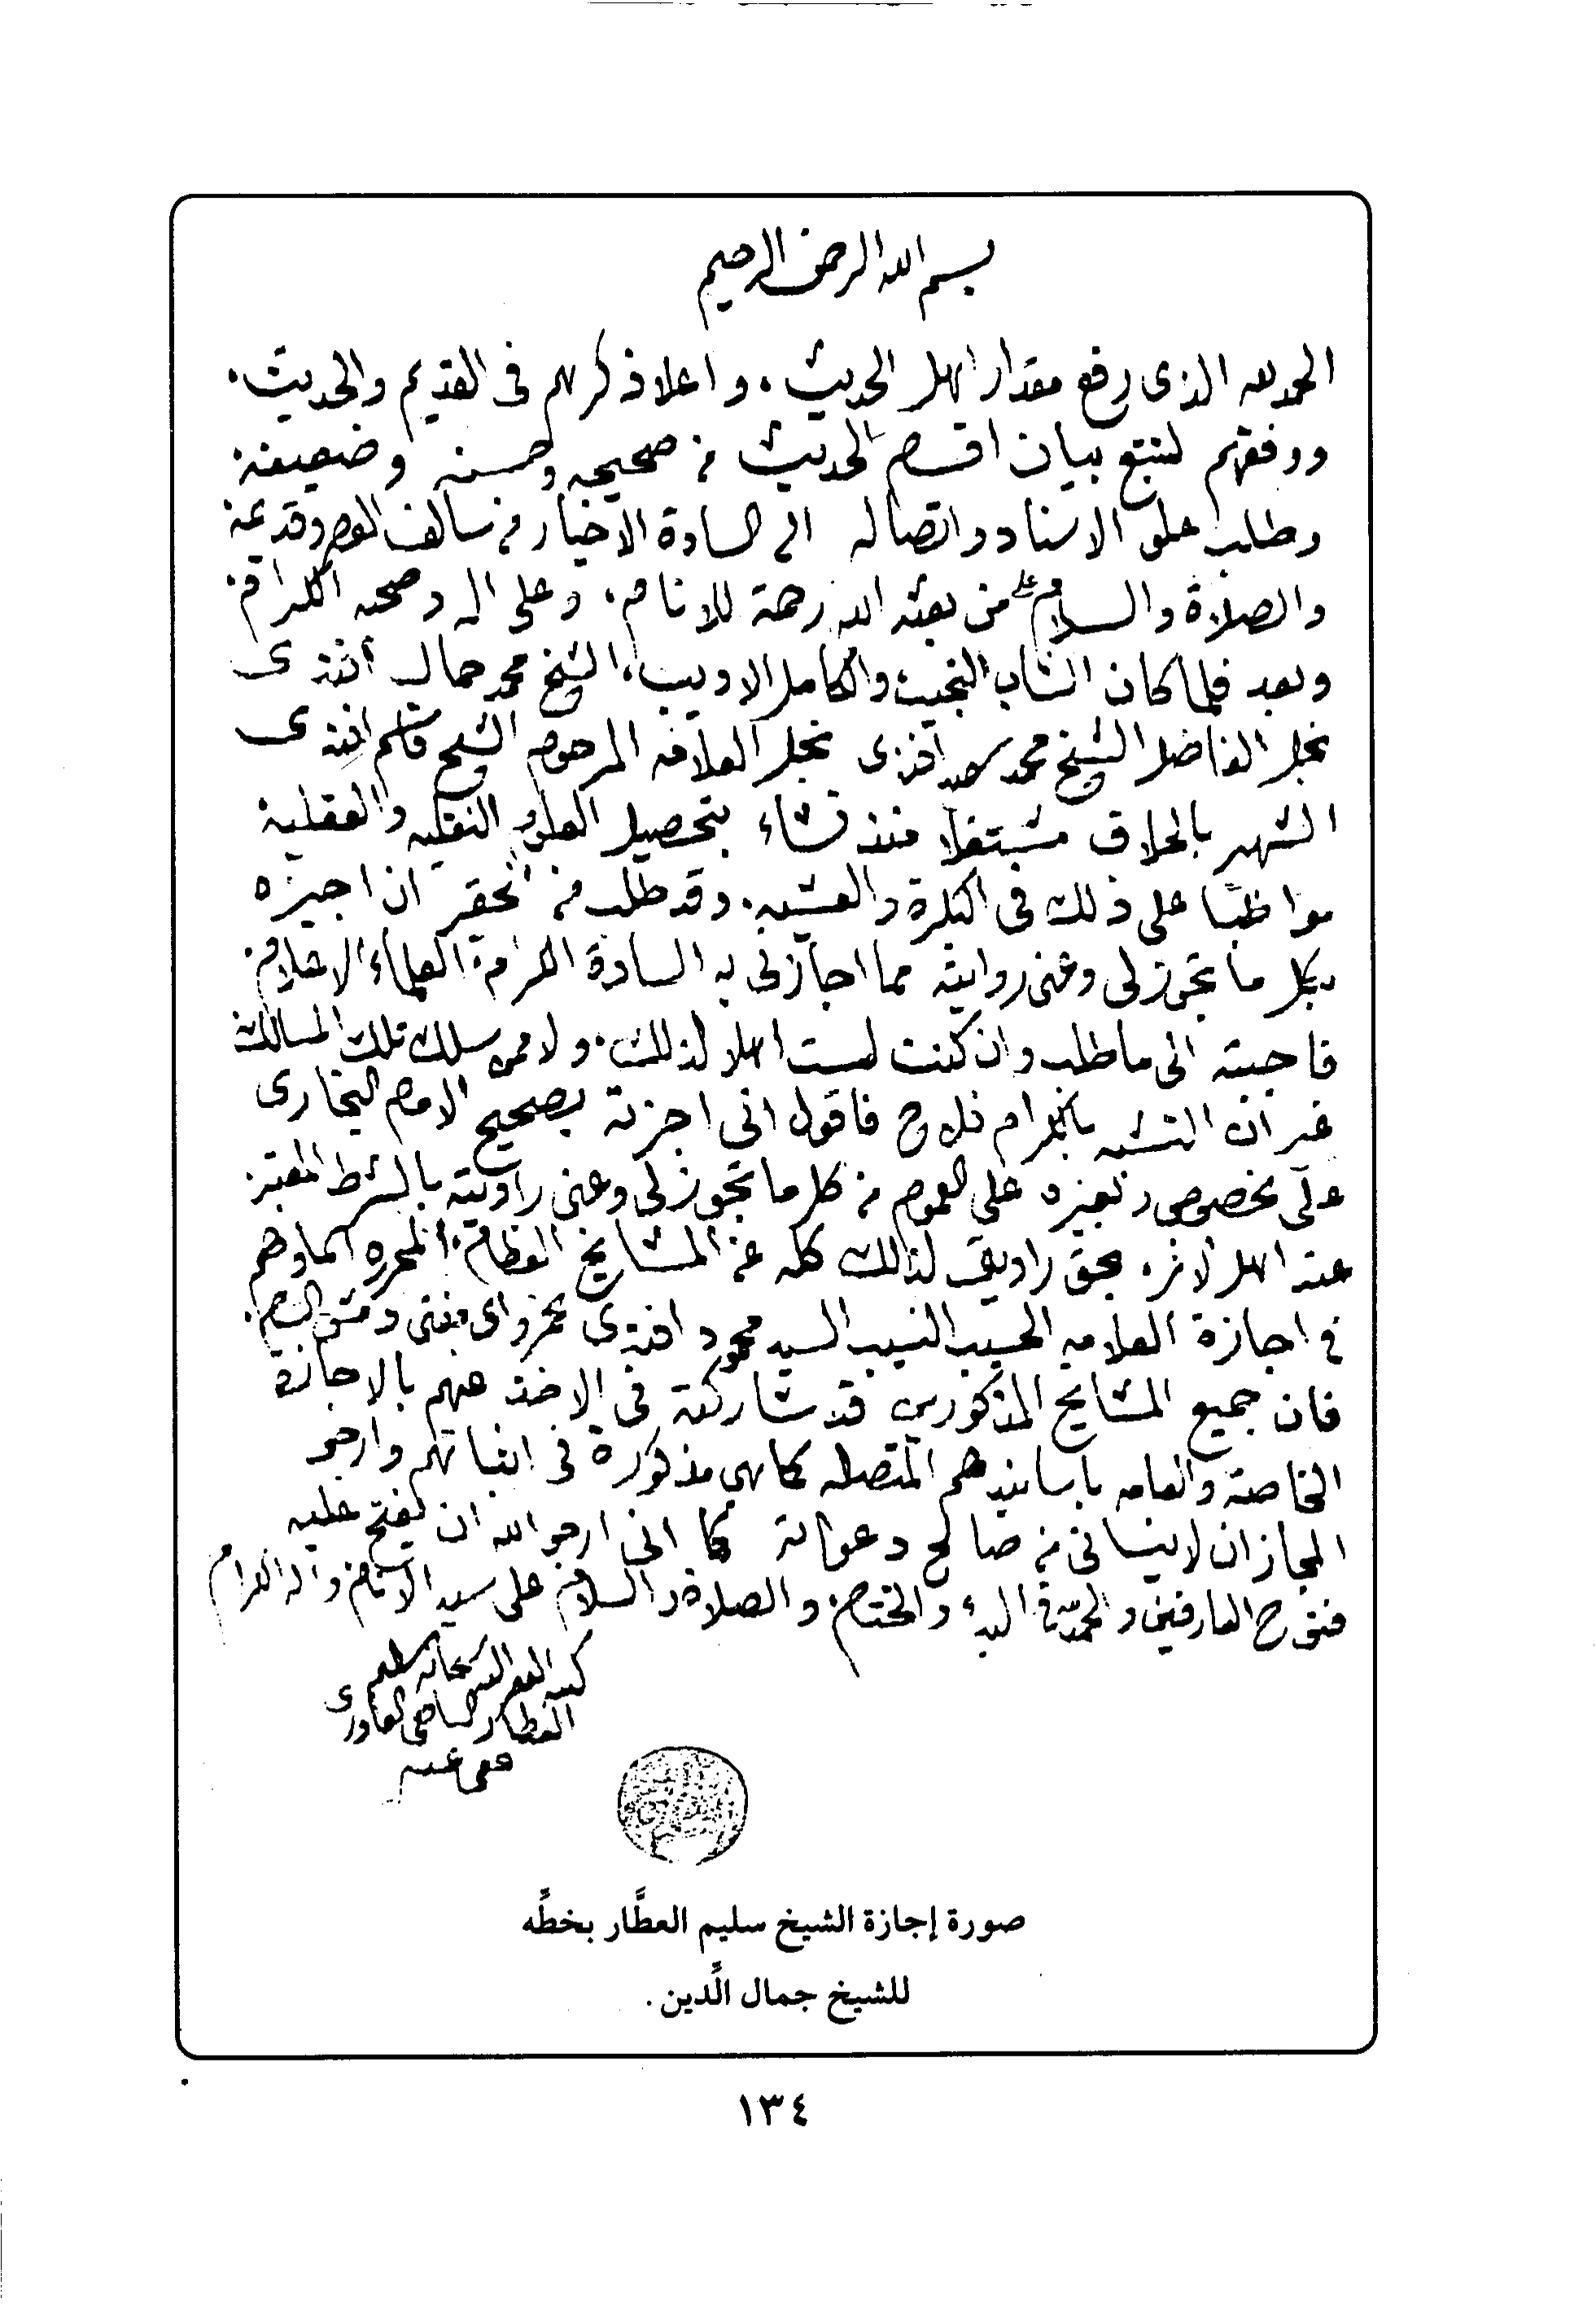 بسم الله الرحمن الرحيم
الحمد لله الذى رفع مقدار اهل الحديث . و اعلا ذكرهم فى القديم والحديث .
ووفقهم لتتبع بيان اقسام الحديث من صحيحه وحسنه وضعيفه
وطلب علو الاسناد واتصاله الى السادة الاخيار من سالف وقديمه
والصلاة والسلام على من بعثه الله رحمة للانام . وعلى اله وصحبه الكرام
وبعد فلما كان الشاب النجيب والكامل الاديب ، الشيخ محمد جمال افندى
نجل الفاضل الشيخ محمد سعيد افندى نجل العلامه المرحوم الشيخ قاسم افندى
الشهير بالحلاق مشتغلا منذ نشاء بتحصيل العلوم النقليه والعقلية
مواظبًا على ذلك فى البكرة والعشيه . وقد طلب من الحقير ان اجيزه
بكل ما تجوز لى وعنى روايته مما اجازنى به السادة الكرام العلماء الاعلام
فاجبته الى ما طلب وان كنت لست اهلا لذلك . ولا ممن سلك تلك المسالك
غير ان التشبه بالكرام فلاح فاقول انى اجزته بصحيح الامام البخارى
على بخصوص وبغيره على العموم من كل ما تجوز لى وعنى راويته بالشرط المعتبر
عند اهل الاثر . بحق راويتى لذالك كله عن المشايخ العظام المحرره اسماوهم
فى اجازة العلامه الحسيب النسيب السيد محمود افندى حمزاوى مفتى دمشق الشام .
فان جميع المشايخ المذكورين قد شاركته فى الاخذ عنهم بالاجازة
الخاصة والعامه باسانيدهم المتصله كما هى مذكورة فى اثباتهم وارجو
المجاز ان لا ينسانى من صالح دعواته كما انى ارجو الله ان يفتح عليه
فتوح العارفين والحمد لله فى البدء والختام والصلاة والسلام على سيد الانام واله الكرام
كتبه الفقير اليه سبحانه سليم
العطار الشافعى القادرى
عفى عنه
صورة إجازة الشيخ سليم العطَّار بخطِّه
للشيخ جمال الَّدين .
١٣٤